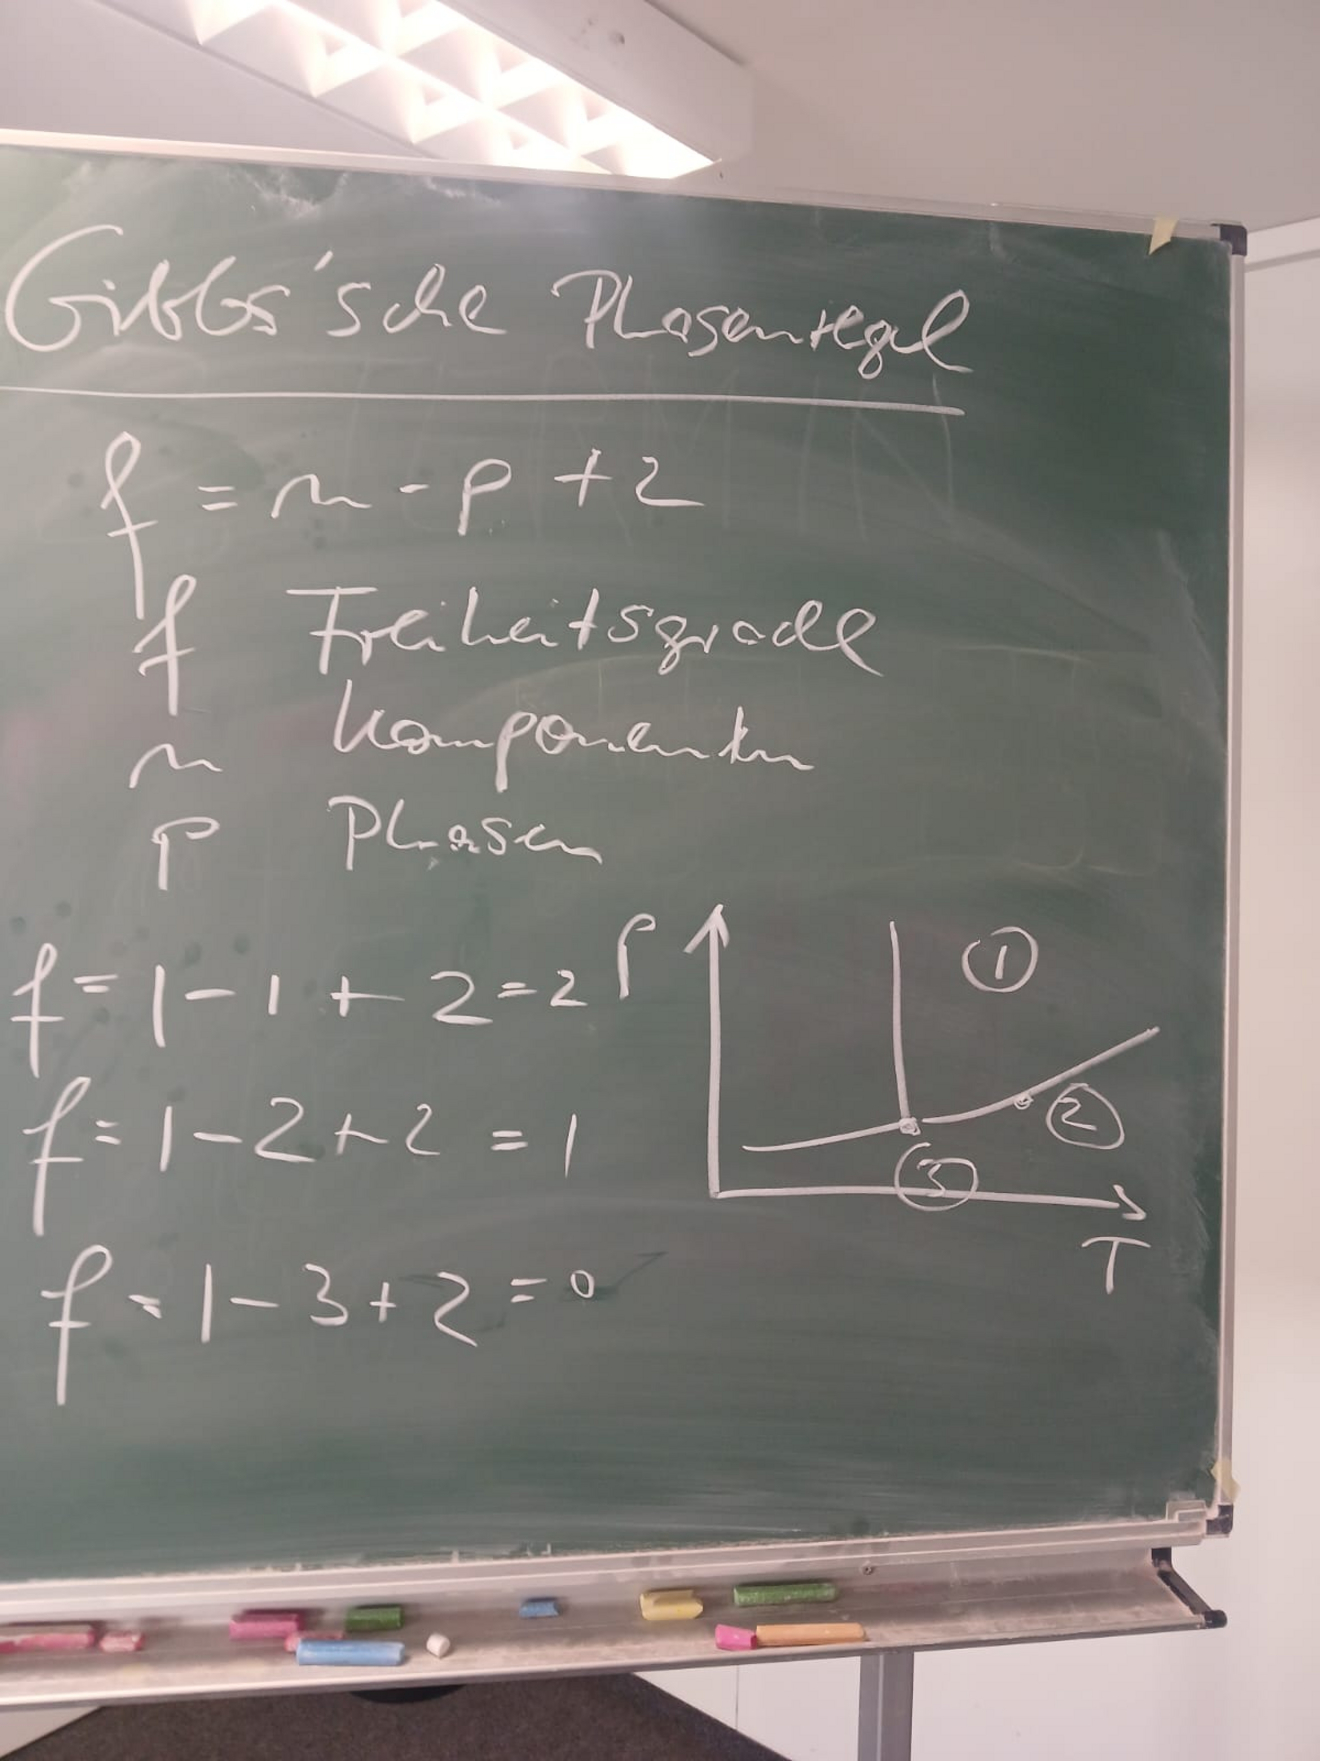 Gibbs'sche Phasenregel
f = n - p + 2
f Freiheitsgrade
n Komponenten
p Phasen
f = 1 - 1 + 2 = 2
f = 1 - 2 + 2 = 1
f = 1 - 3 + 2 = 0
p
1
2
3
T